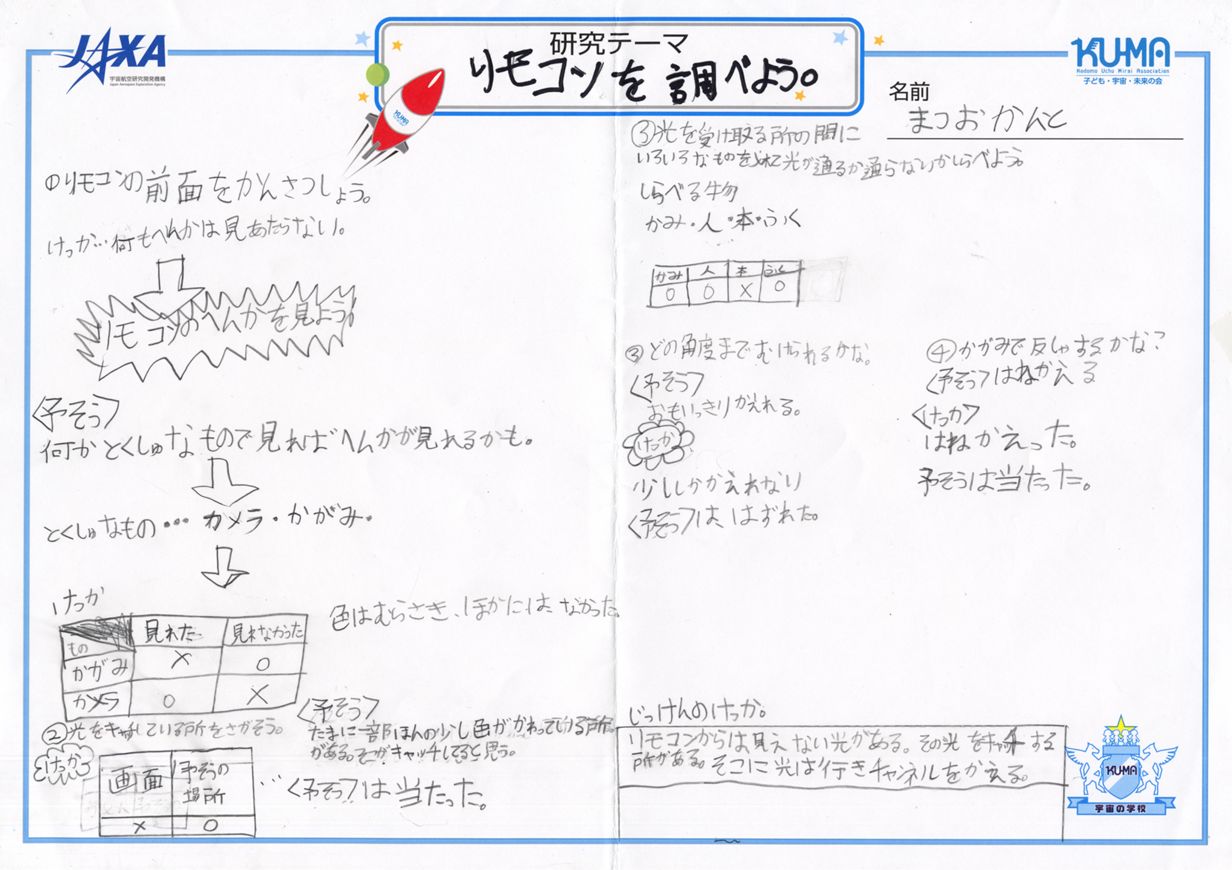 JAXA
宇宙航空研究開発機構
Japan Aerospace Exploration Agency
研究テーマ
リモコンを調べよう。
KUMA
KU-MA
Kodomo Uchu Mirai Association
子ども・宇宙・未来の会
名前
まつおかんと
のリモコンの前面をかんさつしょう。
けっか…何もへんかは見あたらない。
リモコンのへんかを見よう。
〈予そう〉
何かとくしゅなもので見ればへんかが見れるかも。
とくしゅなもの…カメラ・かがみ・
けっか
もの 見れた 見れなかった
かがみ × ○
カメラ ○ ×
色はむらさき、ほかには、なかった
②光をキャッチしている所をさがそう。
けっか
画面 予そうの場所
× ○
〈予そう〉
たまに一部ほんの少し色がかわっている所
がある。そこがキャッチしてると思う。
…〈予そう〉は当たった。
③光を受け取る所の間に
いろいろなものを入れて光が通るか通らないかしらべよう。
しらべる物
かみ・人・本・ふく
かみ 人 本 ふく
○ ○ × ○
③どの角度までむけられるかな。
〈予そう〉
おもいっきりかえれる。
けっか
少ししかかえれない
〈予そう〉は、はずれた。
④かがみで反しゃするかな?
〈予そう〉はねかえる
〈けっか〉
はねかえった。
予そうは当たった。
じっけんのけっか。
リモコンからは見えない光がある。その光をキャッチする
所がある。そこに光は行きチャンネルをかえる。
KUMA
宇宙の学校